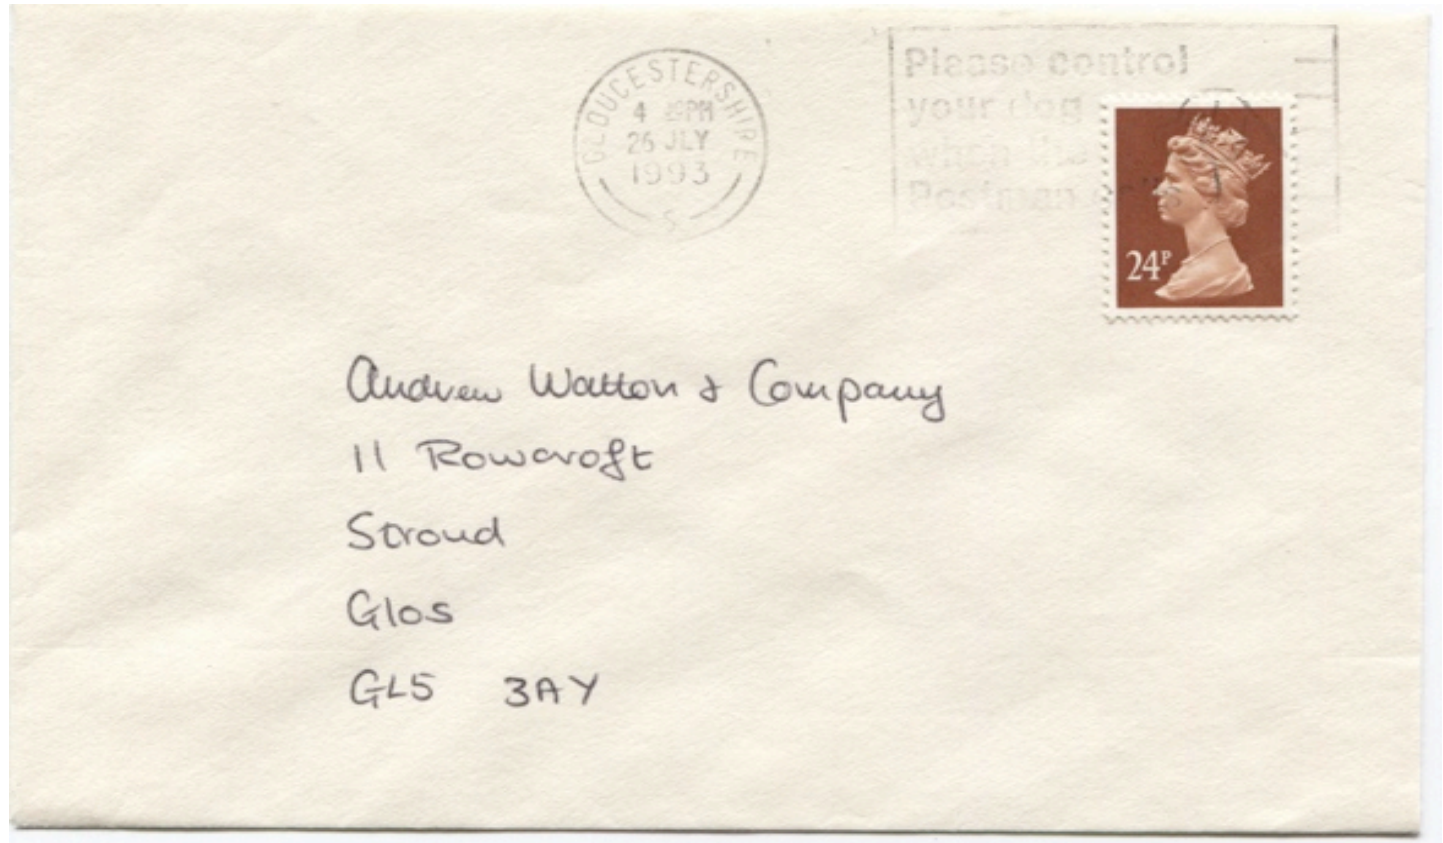 GLOUCESTERSHIRE
4 PM
26 JLY
1993
S
Please control
your dog
when the
Postman calls
24P
Andrew Watton & Company
11 Rowcroft
Stroud
Glos
GL5 3AY